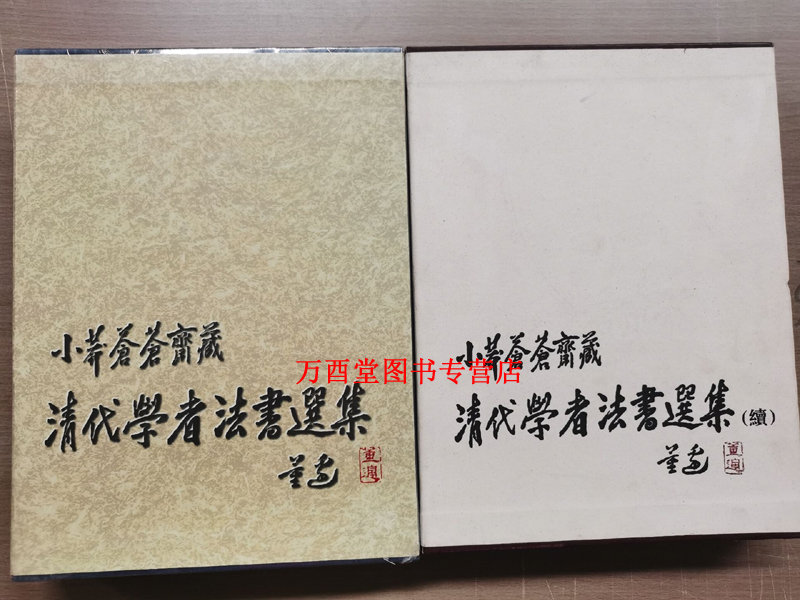 小莽蒼蒼齋藏
清代學者法書選集
董边
小莽蒼蒼齋藏
清代學者法書選集(續)
董边
万酉堂图书专营店